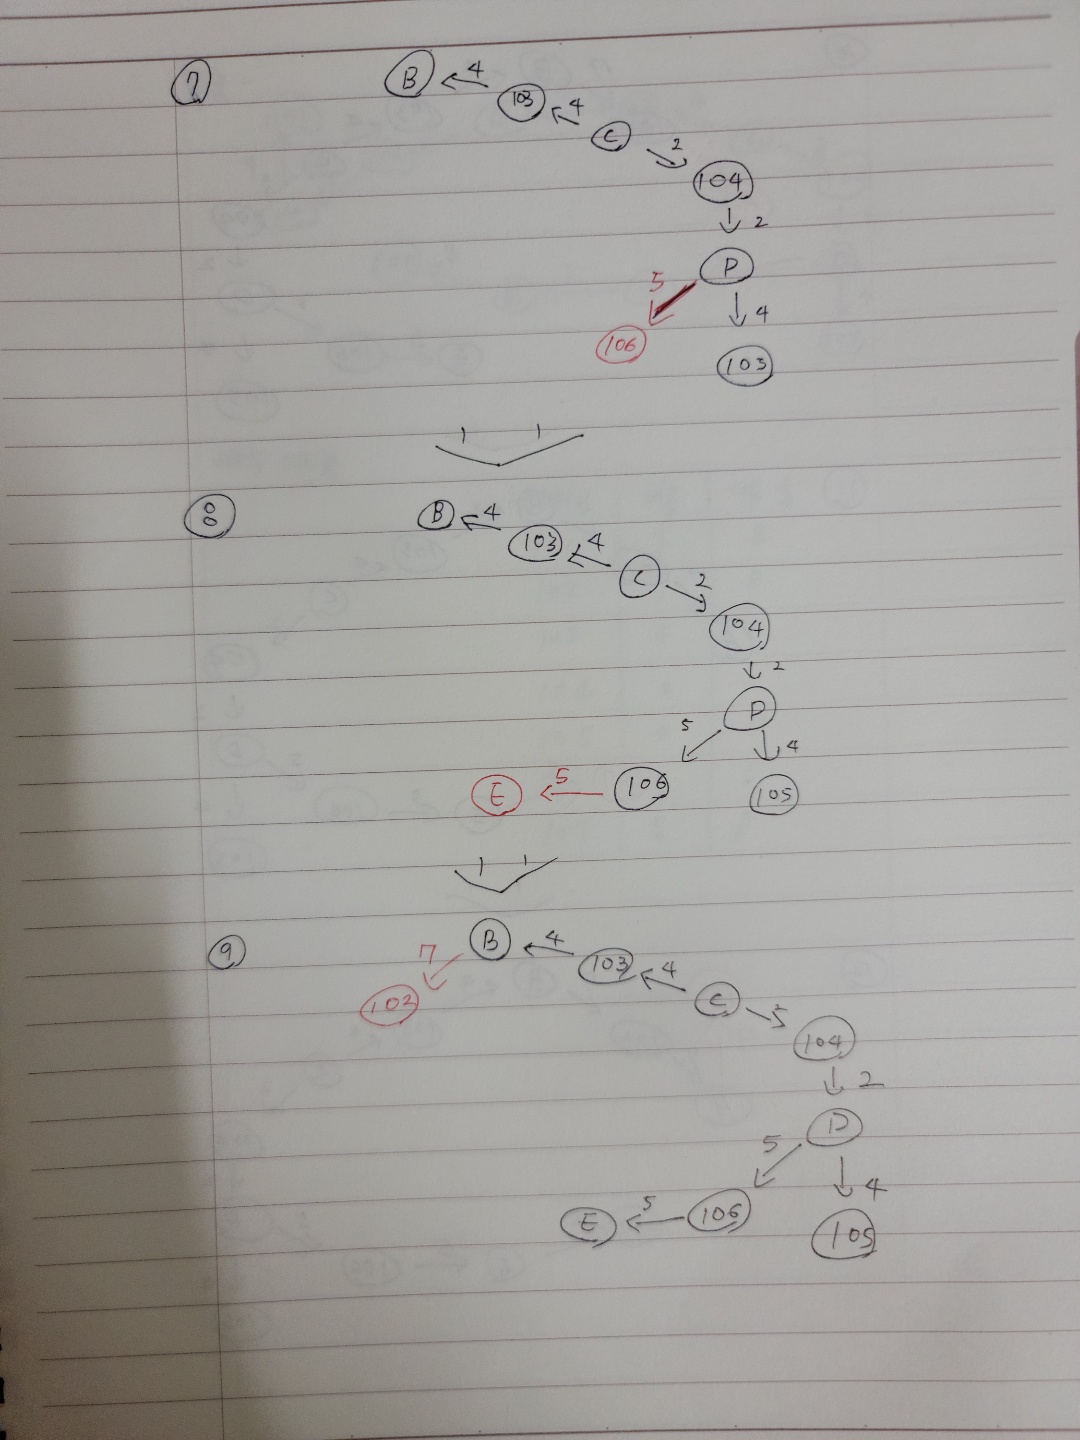 7
B ← 4 103 ← 4 C → 2 104
↓ 2
D
5 ↓ 4
106 103
8
B ← 4 103 ← 4 C → 2 104
↓ 2
D
5 ↓ 4
E ← 5 106 105
9
B ← 4 103 ← 4 C
7
102 104
↓ 2
D
5 ↓ 4
E ← 5 106 105